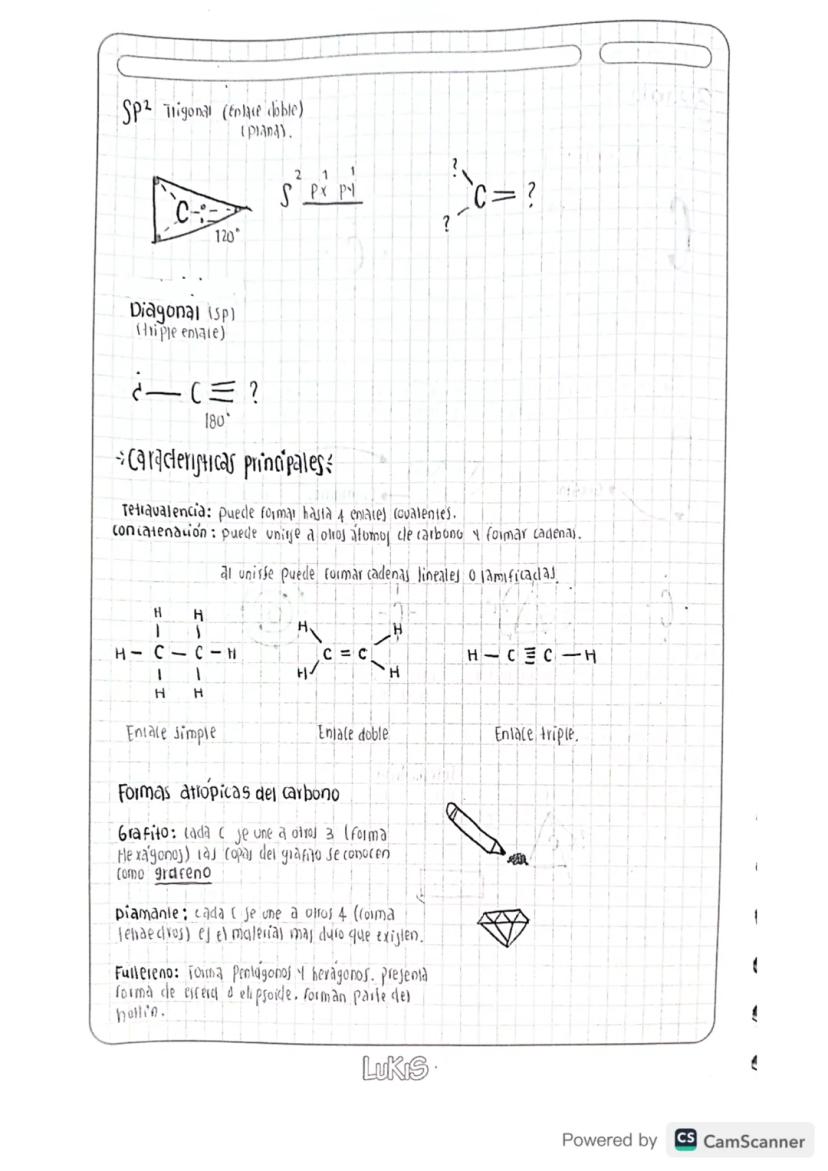 SP² Trigonal (Enlace doble)
(plana).
S² Px¹ Py¹
C
120°
?
C = ?
?
Diagonal (sp)
(triple enlace)
¿ — C ≡ ?
180°
Características principales:
Tetravalencia: puede formar hasta 4 enlaces covalentes.
Concatenación: puede unirse a otros átomos de carbono y formar cadenas.
al unirse puede formar cadenas lineales o ramificadas.
H H
H – C – C – H
H H
H H
C = C
H H
H – C ≡ C – H
Enlace simple
Enlace doble
Enlace triple.
Formas atrópicas del carbono
Grafito: cada C se une a otros 3 (forma
Hexágonos) las copas del grafito se conocen
como grafeno
Diamante: cada C se une a otros 4 (forma
tetraedros) es el material mas duro que existen.
Fullereno: Forma Pentágonos y hexágonos. presenta
forma de esfera o elipsoide. forman parte del
hollín.
LUKIS
Powered by CS CamScanner